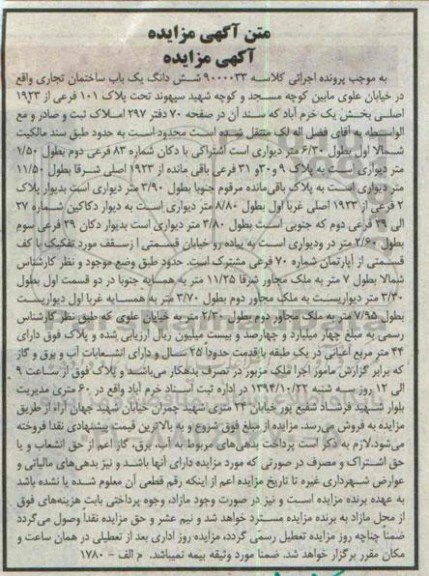 متن آگهی مزایده
آگهی مزایده
به موجب پرونده اجرائی کلاسه ۹۰۰۰۰۳۳ شش دانگ یک باب ساختمان تجاری واقع
در خیابان علوی مابین کوچه مسجد و کوچه شهید سپهوند تحت پلاک ۱۰۱ فرعی از ۱۹۲۳
اصلی بخش یک خرم آباد که سند آن در صفحه ۷۰ دفتر ۲۹۷ املاک ثبت و صادر و مع
الواسطه به آقای فضل اله لک منتقل شده است محدود است به حدود طبق سند مالکیت
شمالا اول بطول ۶/۳۰ متر دیواری است اشتراکی با دکان شماره ۸۳ فرعی دوم بطول ۱/۵۰
متر دیواری است به پلاک ۹ و ۳۰و ۳۱ فرعی باقی مانده از ۱۹۲۳ اصلی شرقا بطول ۱۱/۵۰
متر دیواری است به پلاک باقی‌مانده مرقوم جنوبا بطول ۳/۹۰ متر دیواری است بدیوار پلاک
۲ فرعی از ۱۹۲۳ اصلی غربا اول بطول ۸/۸۰ متر دیواری است به دیوار دکاکین شماره ۲۷
الی ۲۹ فرعی دوم که جنوبی است بطول ۳/۸۰ متر دیواری است بدیوار دکان ۲۹ فرعی سوم
بطول ۲/۶۰ متر در ودیواری است به پیاده رو خیابان قسمتی از سقف مورد تفکیک با کف
قسمتی از آپارتمان شماره ۷۰ فرعی مشترک است. حدود طبق وضع موجود و نظر کارشناس
شمالا بطول ۷ متر به ملک مجاور شرقا ۱۱/۲۵ متر به همسایه جنوبا در دو قسمت اول بطول
۳/۴۰ متر دیواریست به ملک مجاور دوم بطول ۳/۷۰ متر به همسایه غربا اول دیواریست
بطول ۷/۹۵ متر به ملک مجاور دوم بطول ۲/۳۰ متر به خیابان علوی که طبق نظر کارشناس
رسمی به مبلغ چهار میلیارد و چهارصد و بیست میلیون ریال ارزیابی شده و پلاک فوق دارای
۴۴ متر مربع اعیانی در یک طبقه با قدمت حدودا ۲۵ سال و دارای انشعابات آب و برق و گاز
که برابر گزارش مامور اجرا ملک مزبور در تصرف بدهکار می‌باشد و پلاک فوق از ساعت ۹
الی ۱۲ روز سه شنبه ۱۳۹۴/۱۰/۲۲ در اداره ثبت اسناد خرم آباد واقع در ۶۰ متری مدیریت
بلوار شهید فرشاد شفیع پور خیابان ۲۴ متری شهید چمران خیابان شهید جهان آراد از طریق
مزایده به فروش می‌رسد. مزایده از مبلغ فوق شروع و به بالاترین قیمت پیشنهادی نقدا فروخته
می‌شود،لازم به ذکر است پرداخت بدهی‌های مربوط به آب، برق، گاز اعم از حق انشعاب و یا
حق اشتراک و مصرف در صورتی که مورد مزایده دارای آنها باشد و نیز بدهی‌های مالیاتی و
عوارض شهرداری غیره تا تاریخ مزایده اعم از اینکه رقم قطعی آن معلوم شده یا نشده باشد
به عهده برنده مزایده است و نیز در صورت وجود مازاد، وجوه پرداختی بابت هزینه‌های فوق
از محل مازاد به برنده مزایده مسترد خواهد شد و نیم عشر و حق مزایده نقدا وصول می‌گردد
ضمنا چنانچه روز مزایده تعطیل رسمی گردد، مزایده روز اداری بعد از تعطیلی در همان ساعت و
مکان مقرر برگزار خواهد شد. ضمنا مورد وثیقه بیمه نمیباشد. م الف - ۱۷۸۰